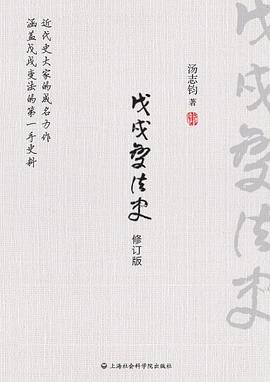 戊戌变法史
汤志钧 著
戊戌变法史
修订版
近代史大家的成名力作
涵盖戊戌变法的第一手史料
上海社会科学院出版社